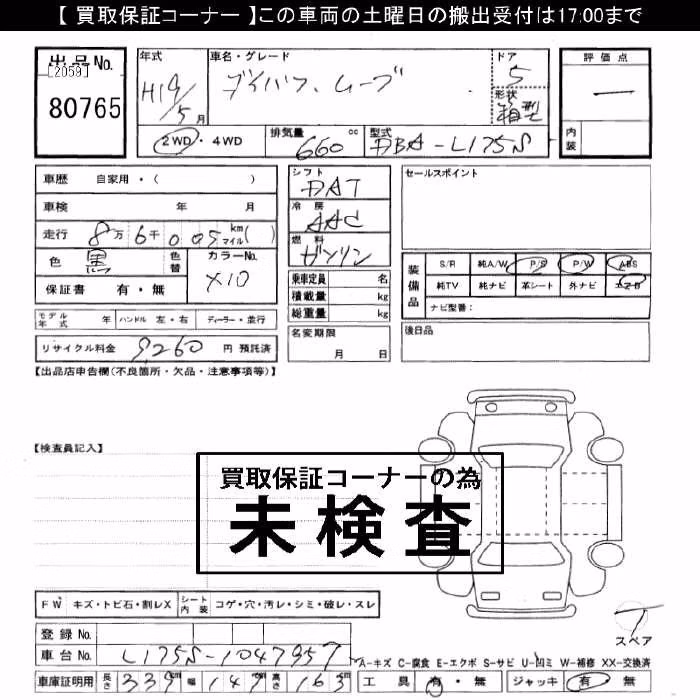 【 買取保証コーナー 】この車両の土曜日の搬出受付は17:00まで
出品No.
[2059]
80765
年式
H19/5月
車名・グレード
ダイハツ ムーブ
ドア
5
形状
箱型
評価点
―
内装
2WD・4WD
排気量
660 cc
型式
DBA-L175S
車歴 自家用・( )
車検 年 月
走行 8万6千005 km マイル( )
色 黒 色替
カラーNo.
X10
保証書 有・無
シフト
DAT
冷房
AAC
燃料
ガソリン
乗車定員 名
積載量 kg
総重量 kg
セールスポイント
装備品
S/R 純A/W P/S P/W ABS
純TV 純ナビ 革シート 外ナビ エアB
ナビ型番:
モデル年式 年 ハンドル 左・右 ディーラー・並行
名変期限
月 日
後日品
リサイクル料金 9,260 円 預託済
【出品店申告欄(不良箇所・欠品・注意事項等)】
【検査員記入】
買取保証コーナーの為
未検査
FW キズ・トビ石・割レX シート内装 コゲ・穴・汚レ・シミ・破レ・スレ
スペア
登録No.
車台No. L175S-1047957
A-キズ C-腐食 E-エクボ S-サビ U-凹ミ W-補修 XX-交換済
車庫証明用 長さ 339cm 幅 147cm 高さ 163cm 工具 有・無 ジャッキ 有・無